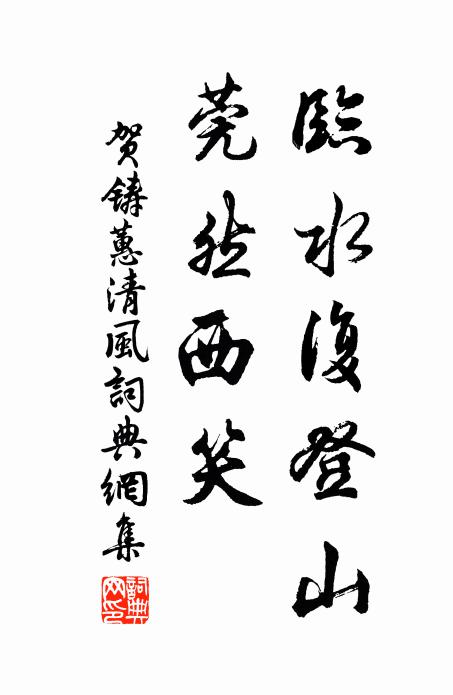 臨水復登山
莞然西笑
贺鑄蕙清風詞典網集
詞典网印